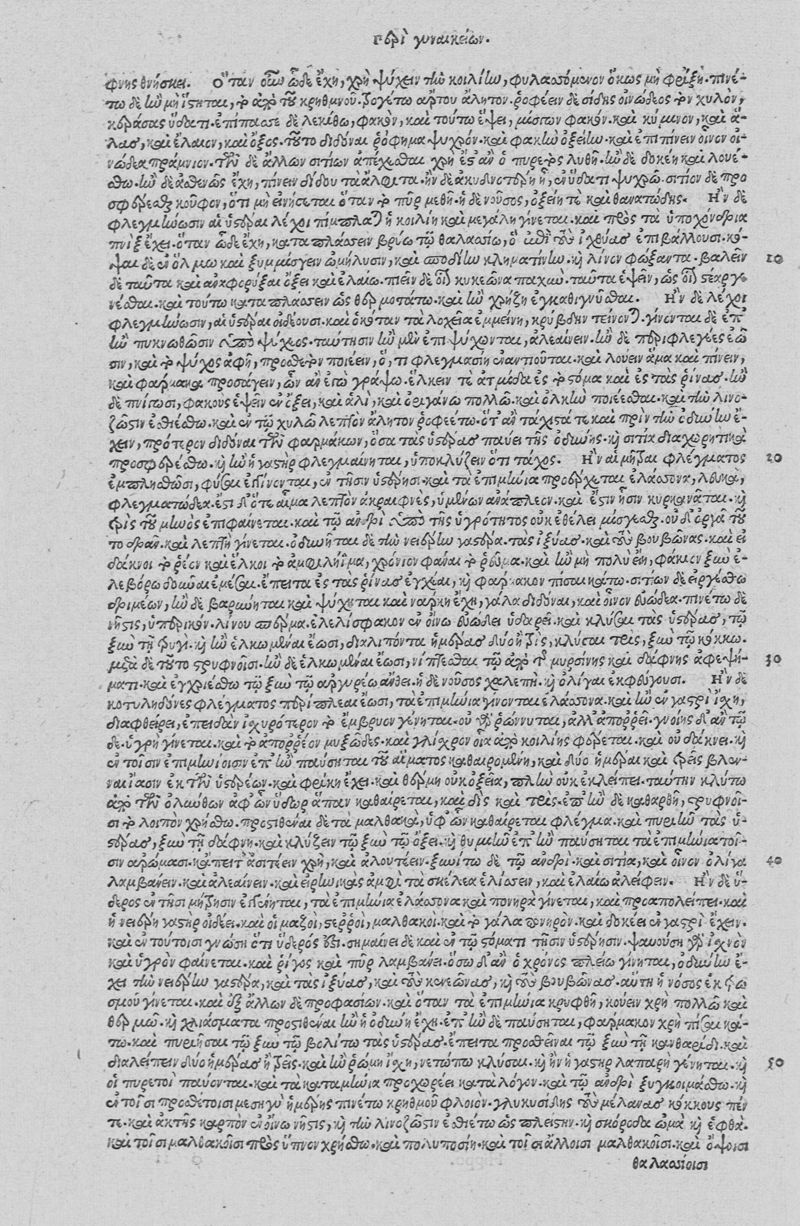 περὶ γυναικείων.
φνης θνήσκει. Ὅταν οὕτω ὧδε ἔχῃ, χρὴ ψύχειν τὴν κοιλίην, φυλασσόμενον ὅκως μὴ φρίξῃ. πινέ-
τω δὲ ἢν μὴ ἵστηται, τὸ ἀπὸ τοῦ κρήμνου. τρωγέτω ἄρτου ἄλητον. ῥοφέειν δὲ σίδης οἰνώδεος τὸν χυλόν,
λας, καὶ ἔλαιον, καὶ ὄξος. τοῦτο διδόναι ῥόφημα ψυχρόν. καὶ φακὴν ὀξείην. καὶ ἐπιπίνειν οἶνον οἰ-
νώδεα πράμνιον. τῶν δὲ ἄλλων σιτίων ἀπέχεσθαι χρὴ ἐς ἂν ὁ πυρετὸς λυθῇ. ἢν δὲ δοκέῃ καὶ λουέ-
σθω. ἢν δὲ ἀσθενῶς ἔχῃ, πίνειν δίδου τὰ ἄλφιτα. ἢν δὲ ἀκινδυνοτέρη ᾖ, ἐν ὕδατι ψυχρῷ. σιτίον δὲ προ
σφέρεσθαι κοῦφον, ὅτι μὴ κινήσεται ὅταν τὸ πῦρ μεθῇ. ἡ δὲ νοῦσος, ὀξείη τε καὶ θανατώδης. Ἢν δὲ
φλεγμήνωσιν αἱ ὑστέραι λέχοι πίμπλαται ἡ κοιλίη καὶ μεγάλη γίνεται. καὶ πρὸς τὰ ὑποχόνδρια
πνὶξ ἔχει. ὅταν ὧδε ἔχῃ, καταπλάσσειν βρύῳ τῷ θαλασσίῳ, ὃ ἐπὶ τοὺς ἰχθύας ἐπιβάλλουσι. κό-
ψαι δὲ ἐν ὅλμῳ καὶ ξυμμίσγειν ὠμήλυσιν, καὶ σποδὸν κληματίνην. καὶ λίνον φώξαντα. βαλεῖν 10
δὲ ταῦτα καὶ ἀναφορύξαι ὄξει καὶ ἐλαίῳ. ποιεῖν δὲ οἷον κυκεῶνα παχύν. ταῦτα ἕψειν, ὡς οἷον στέαρ γε-
νέσθαι. καὶ τούτῳ καταπλάσσειν ὡς θερμοτάτῳ. καὶ ἢν χρῄζῃ ἐγκαθιγνύσθαι. Ἢν δὲ λέχοι
φλεγμήνωσιν, αἱ ὑστέραι οἰδέουσι. καὶ ὁκόταν τὰ λοχεῖα ἐμμείνῃ, κρύβδην τείνονται. γίνονται δὲ ἐπ'
ἢν πυκνωθῶσιν ὑπὸ ψύχεος. ταύτῃσιν ἢν μὲν ἐπιψύχωνται, ἀλεαίνειν. ἢν δὲ περιφλεγέες ἔω
σιν, καὶ τὸ ψῦχος ἀφῇ, πρόσθετον ποιέειν, ὅ, τι φλεγμασίη ἀναπούται. καὶ λούειν ἅμα καὶ πίνειν,
καὶ φάρμακα προσάγειν, ὧν ἂν ἐγὼ γράψω. ἕλκειν τε ἀτμίδα ἐς τὸ στόμα καὶ ἐς τὰς ῥῖνας. ἢν
δὲ πνίγωσι, φακοὺς ἕψειν ἐν ὄξει, καὶ ἁλί, καὶ ὀριγάνῳ πολλῷ. καὶ ὁλκὴν ποιέεσθαι. καὶ τὴν λινό-
ζωσιν ἐσθιέτω. καὶ ἐν τῷ χυλῷ λεπτὸν ἄλητον ῥοφεέτω. ὅτ' ἂν τάχιστά τε καὶ πρὶν τὴν ὀδύνην ἔ-
χειν, πρότερον διδόναι τῶν φαρμάκων, ὅσα τὰς ὑστέρας παύει τῆς ὀδύνης. καὶ σιτία διαχωρητικὰ
προσφερέσθω. καὶ ἢν ἡ γαστὴρ φλεγμαίνηται, ὑποκλύζειν ὅτι τάχος. Ἢν αἱ μῆτραι φλέγματος 20
ἐμπλησθῶσι, φῦσα ἐγγίνονται, ἐν τῇσιν ὑστέρῃσι. καὶ τὰ ἐπιμήνια προέρχεται ἐλάσσονα, λευκά,
φλεγματώδεα. ἔστι δ' ὅτε αἷμα λεπτὸν ἀκραιφνές, ὑμένων ἀνάπλεον. καὶ ἔστιν ᾗσιν κυρκανᾶται. καὶ
τρὶς τοῦ μηνὸς ἐπιφαίνεται. καὶ τῷ ἀνδρὶ ὑπὸ τῆς ὑγρότητος οὐκ ἐθέλει μίσγεσθαι. οὐδ' ὀργᾷ τοῦ
το δρᾶν. καὶ λεπτὴ γίνεται. ὀδυνῆται δὲ τὴν νειαίρην γαστέρα. τὰς ἰξύας. καὶ τοὺς βουβῶνας. καὶ εἰ
δάκνοι τὸ ῥέον καὶ ἕλκοι τὸ ἀμφὶ λῆμα, χρόνιον φάναι τὸ ῥεῦμα. καὶ ἢν μὴ πολὺ ἔῃ, φάκιον ξὺν ἐ-
λεβόρῳ δοῦναι ἐμέσαι. ἔπειτα ἐς τὰς ῥῖνας ἐγχέαι, καὶ φάρμακον πῖσαι κάτω. σιτίων δὲ εἰργέσθω
δριμέων, ἢν δὲ βαρύνηται καὶ ψύχηται καὶ νάρκη ἔχῃ, γάλα διδόναι, καὶ οἶνον θυώδεα. πινέτω δὲ
νῆστις, ὑπερικόν. λίνου σπέρμα. ἐλελίσφακον ἐν οἴνῳ θυώδει ὑδαρεῖ. καὶ κλύζειν τὰς ὑστέρας, τῷ
ξὺν τῇ τρυγί. καὶ ἢν ἑλκώμεναι ἔωσι, διαλιπόντα ἡμέρας δύο ἢ τρεῖς, κλύσαι τρὶς, ξὺν τῷ κόκκῳ.
μετὰ δὲ τοῦτο στρυφνοῖσι. ἢν δὲ ἑλκώμεναι ἔωσι, νίπτεσθαι τῷ ἀπὸ τῆς μυρσίνης καὶ δάφνης ἀφεψή- 30
ματι. καὶ ἐγχριέσθω τῷ ξὺν τῷ ἀργυρέῳ ἄνθει. ἡ δὲ νοῦσος χαλεπή. καὶ ὀλίγαι ἐκφεύγουσι. Ἢν δὲ
κοτυληδόνες φλέγματος περίπλεαι ἔωσι, τὰ ἐπιμήνια γίνονται ἐλάσσονα. καὶ ἢν ἐν γαστρὶ ἴσχῃ,
διαφθείρει, ἐπειδὰν ἰσχυρότερον τὸ ἔμβρυον γένηται. οὐ γὰρ ῥώννυται, ἀλλ' ἀπορρεῖ. γνοίης δ' ἂν τῷ
δε. ὑγρὴ γίνεται. καὶ τὸ ἀπορρέον μυξῶδες. καὶ γλίσχρον οἷα ἀπὸ κοιλίης φέρεται. καὶ οὐ δάκνει. καὶ
ἐν τοῖσιν ἐπιμηνίοισιν ἐπ' ἢν παύσηται τοῦ αἵματος καθαιρομένη, καὶ δύο ἡμέραι καὶ τρεῖς βλέν-
ναι ἴασιν ἐκ τῶν ὑστερέων. καὶ φρίκη ἔχει. καὶ θέρμη οὐκ ὀξεῖα, πλὴν οὐκ ἐκλείπει. ταύτην κλύσω
ἀπὸ τῶν ὀλύνθων ἀφ' ὧν ὕδωρ ἅπαν καθαίρεται, καὶ δὶς καὶ τρίς. ἐπ' ἢν δὲ καθαρθῇ, στρυφνοῖ-
σι τὸ λοιπὸν χρήσθω. προστιθέναι δὲ τὰ μαλθακά, ὑφ' ὧν καθαίρεται φλέγμα. καὶ πυριῆν τὰς ὑ-
στέρας, ξὺν τῇ δάφνῃ. καὶ κλύζειν τῷ ξὺν τῷ ὄξει. καὶ θυμιῆν ἐπ' ἢν παύσηται τὰ ἐπιμήνια τοῖ-
σιν ἀρώμασι. κἄπειτ' ἀσιτέειν χρή, καὶ ἀλουτέειν. ξυνίτω δὲ τῷ ἀνδρί. καὶ σιτία, καὶ οἶνον ὀλίγα 40
λαμβάνειν. καὶ ἀλεαίνειν. καὶ εἰρίῳ κατὰ ἀμφὶ τὰ σκέλεα ἑλίσσειν, καὶ ἐλαίῳ ἀλείφειν. Ἢν δὲ ὕ-
δερος ἐν τῇσι μήτρῃσιν ἐγγένηται, τὰ ἐπιμήνια ἐλάσσονα καὶ πονηρὰ γίνεται, καὶ προαπολείπει. καὶ
ἡ νειαίρη γαστὴρ οἰδέει. καὶ οἱ μαζοί, στερροί, μαλθακοί. καὶ τὸ γάλα πονηρόν. καὶ δοκέει ἐν γαστρὶ ἔχειν.
καὶ ἐν τούτοισι γνώσῃ ὅτι ὕδερός ἐστι. σημαίνει δὲ καὶ ἐν τῷ στόματι τῇσιν ὑστέρῃσιν. ψαυούσῃ γὰρ ἰσχνὸν
καὶ ὑγρὸν φαίνεται. καὶ ῥῖγος καὶ πῦρ λαμβάνει. ὅσῳ δ' ἂν ὁ χρόνος πλείω γίνηται, ὀδύνην ἔ-
χει τὴν νειαίρην γαστέρα, καὶ τὰς ἰξύας, καὶ τοὺς κενεῶνας, καὶ τοὺς βουβῶνας. αὕτη ἡ νόσος ἐκ τρω
σμοῦ γίνεται. καὶ ἐξ ἄλλων δὲ προφασίων. καὶ ὅταν τὰ ἐπιμήνια κρυφθῇ, λούειν χρὴ πολλῷ καὶ
θερμῷ. καὶ χλιάσματα προστιθέναι ἢν ἡ ὀδύνη ἔχῃ. ἐπ' ἢν δὲ παύσηται, φάρμακον χρὴ πῖσαι κά-
τω. καὶ πυριῆσαι τῷ ξὺν τῷ βολίτῳ τὰς ὑστέρας. ἔπειτα προσθεῖναι τῷ ξὺν τῇ κανθαρίδι. καὶ
διαλείπειν δύο ἡμέρας ἢ τρεῖς. καὶ ἢν ῥώμη ἴσχῃ, νετώπῳ κλύσαι. καὶ ἢν ἡ γαστὴρ λαπαρὴ γένηται. καὶ 50
οἱ πυρετοὶ παύονται. καὶ τὰ καταμήνια προχωρέει κατὰ λόγον. καὶ τῷ ἀνδρὶ ξυγκοιμάσθω. καὶ
ἐν τοῖσι προσθέτοισι μεσηγὺ ἡμέρης πινέτω κρήθμου φλοιόν. γλυκυσίδης τοὺς μέλανας κόκκους πέν
τε. καὶ ἀκτῆς καρπὸν ἐν οἴνῳ νῆστις, καὶ τὴν λινόζωσιν ἐσθιέτω ὡς πλείστην. καὶ σκόροδα ὠμὰ καὶ ἑφθά.
καὶ τοῖσι μαλθακοῖσι πρὸς ὕπνον χρήσθω. καὶ πολυποσίῃ. καὶ τοῖσι ἄλλοισι μαλθακοῖσι. καὶ ὄψοισι
θαλασσίοισι